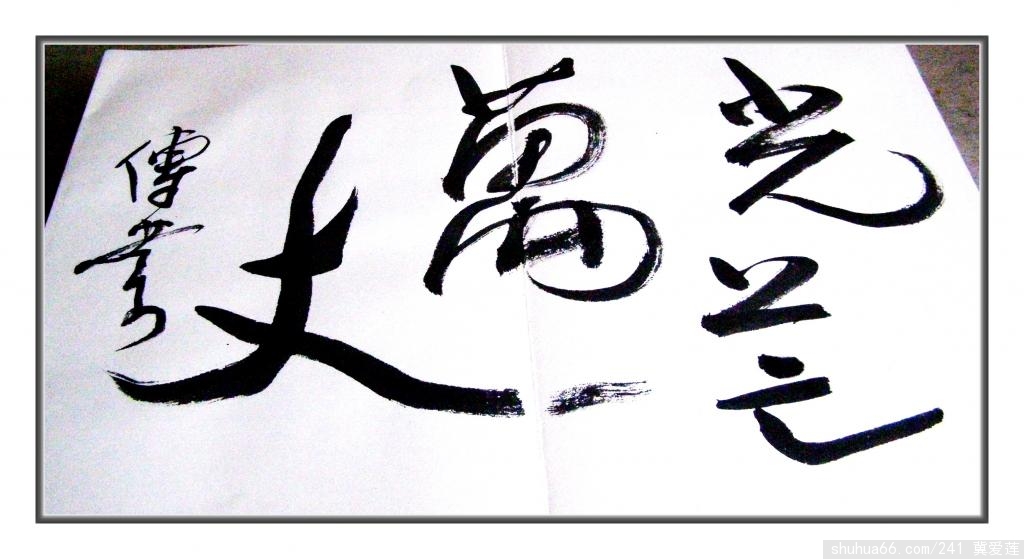 光芒
萬
丈
傳芳
shuhua66.com/241 冀爱莲